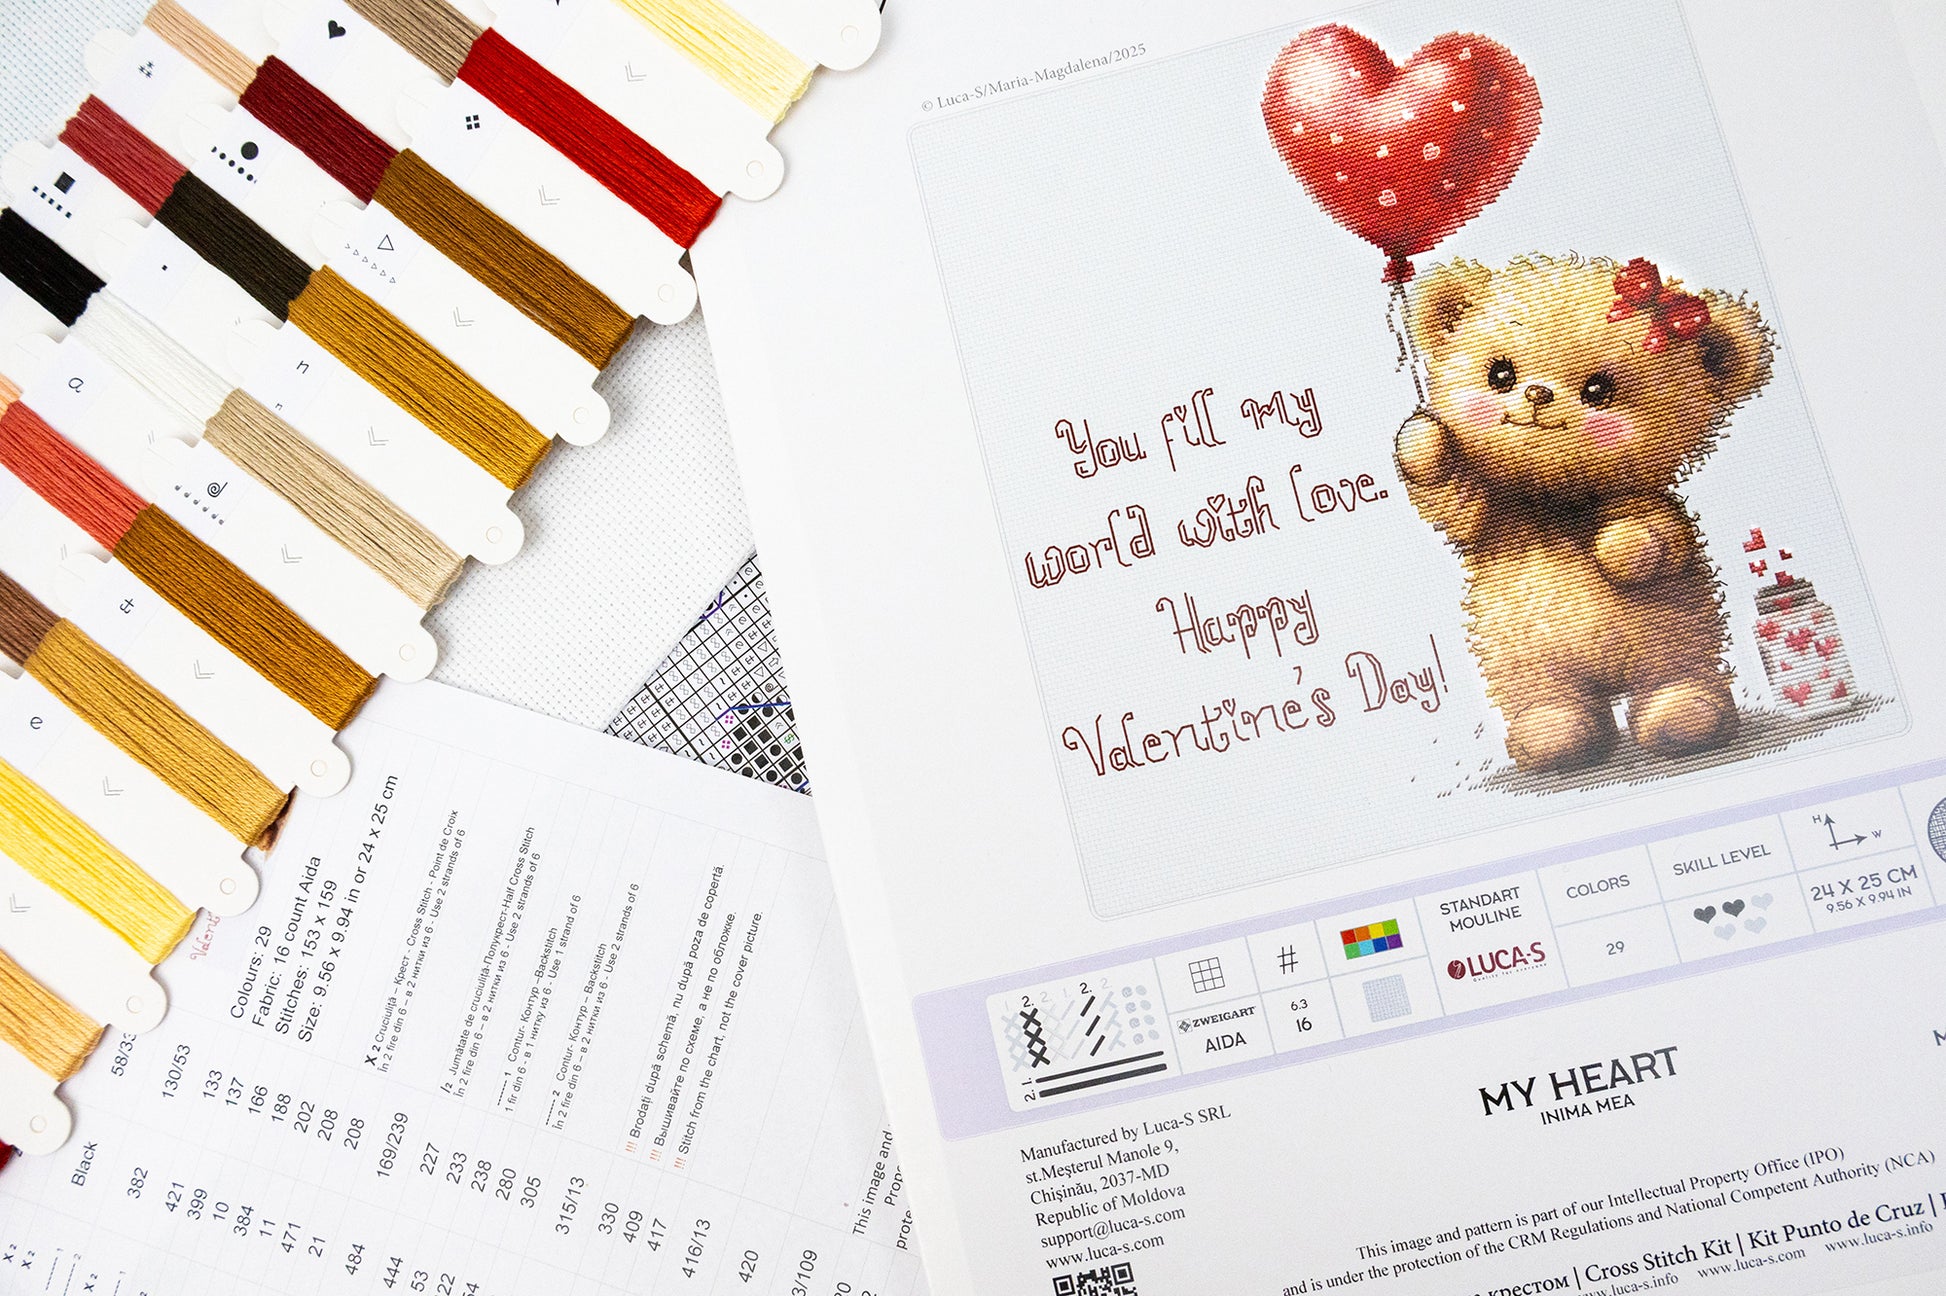 © Luca-S/Maria-Magdalena/2025
You fill my
world with love.
Happy
Valentine's Day!
2. 2.
2. 1.
ZWEIGART
AIDA
#
6.3
16
STANDART
MOULINE
LUCA-S
COLORS
29
SKILL LEVEL
H
W
24 X 25 CM
9.56 X 9.94 IN
MY HEART
INIMA MEA
Manufactured by Luca-S SRL
st.Meşterul Manole 9,
Chişinău, 2037-MD
Republic of Moldova
support@luca-s.com
www.luca-s.com
This image and pattern is part of our Intellectual Property Office (IPO)
and is under the protection of the CRM Regulations and National Competent Authority (NCA)
крестом | Cross Stitch Kit | Kit Punto de Cruz |
www.luca-s.info www.luca-s.com www.luca-s.info
a
n
n
@
&
e
Colours: 29
Fabric: 16 count Aida
Stitches: 153 x 159
Size: 9.56 x 9.94 in or 24 x 25 cm
X 2 Cruciuliță – Крест- Cross Stitch - Point de Croix
în 2 fire din 6 – в 2 нитки из 6 - Use 2 strands of 6
/2 Jumătate de cruciuliță-Полукрест-Half Cross Stitch
în 2 fire din 6 – в 2 нитки из 6 - Use 2 strands of 6
------ 1 Contur- Контур –Backstitch
1 fir din 6 - в 1 нитку из 6 - Use 1 strand of 6
------ 2 Contur- Контур – Backstitch
în 2 fire din 6 – в 2 нитки из 6 - Use 2 strands of 6
!!! Brodați după schemă, nu după poza de copertă.
!!! Вышивайте по схеме, а не по обложке.
!!! Stitch from the chart, not the cover picture.
This image and
130/53
133
137
166
188
202
208
208
169/239
227
233
238
280
305
315/13
330
409
417
416/13
420
Black
382
421
399
10
384
11
471
21
484
444
X 2
X 2
X 2